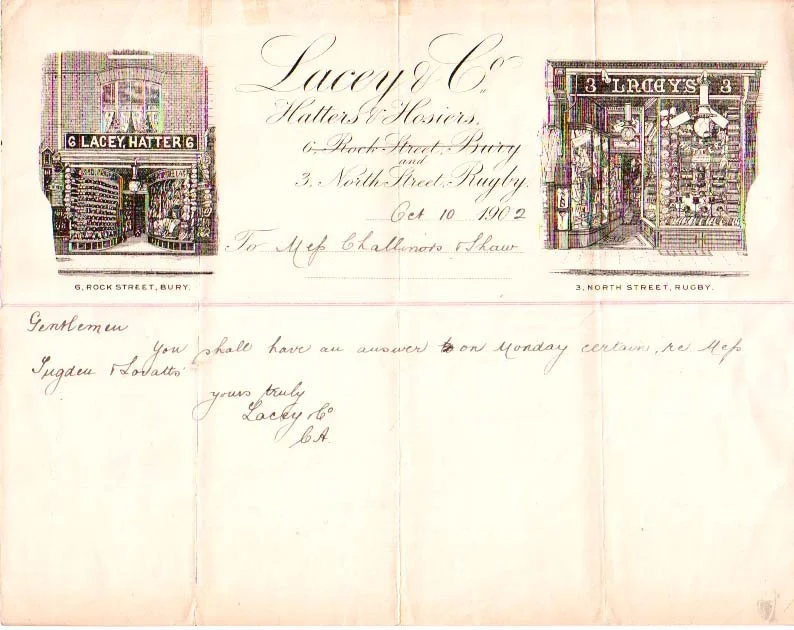 Lacey & Co.
Hatters & Hosiers.
6. Rock Street, Bury
and
3. North Street, Rugby.
Oct 10 1902
To Mess Challinors & Shaw
6 LACEY, HATTER 6
3 LACEY'S 3
6, ROCK STREET, BURY.
3, NORTH STREET, RUGBY.
Gentlemen
You shall have an answer on Monday certain, re Mess
Sugden & Lovatts
yours truly
Lacey & Co
C A.